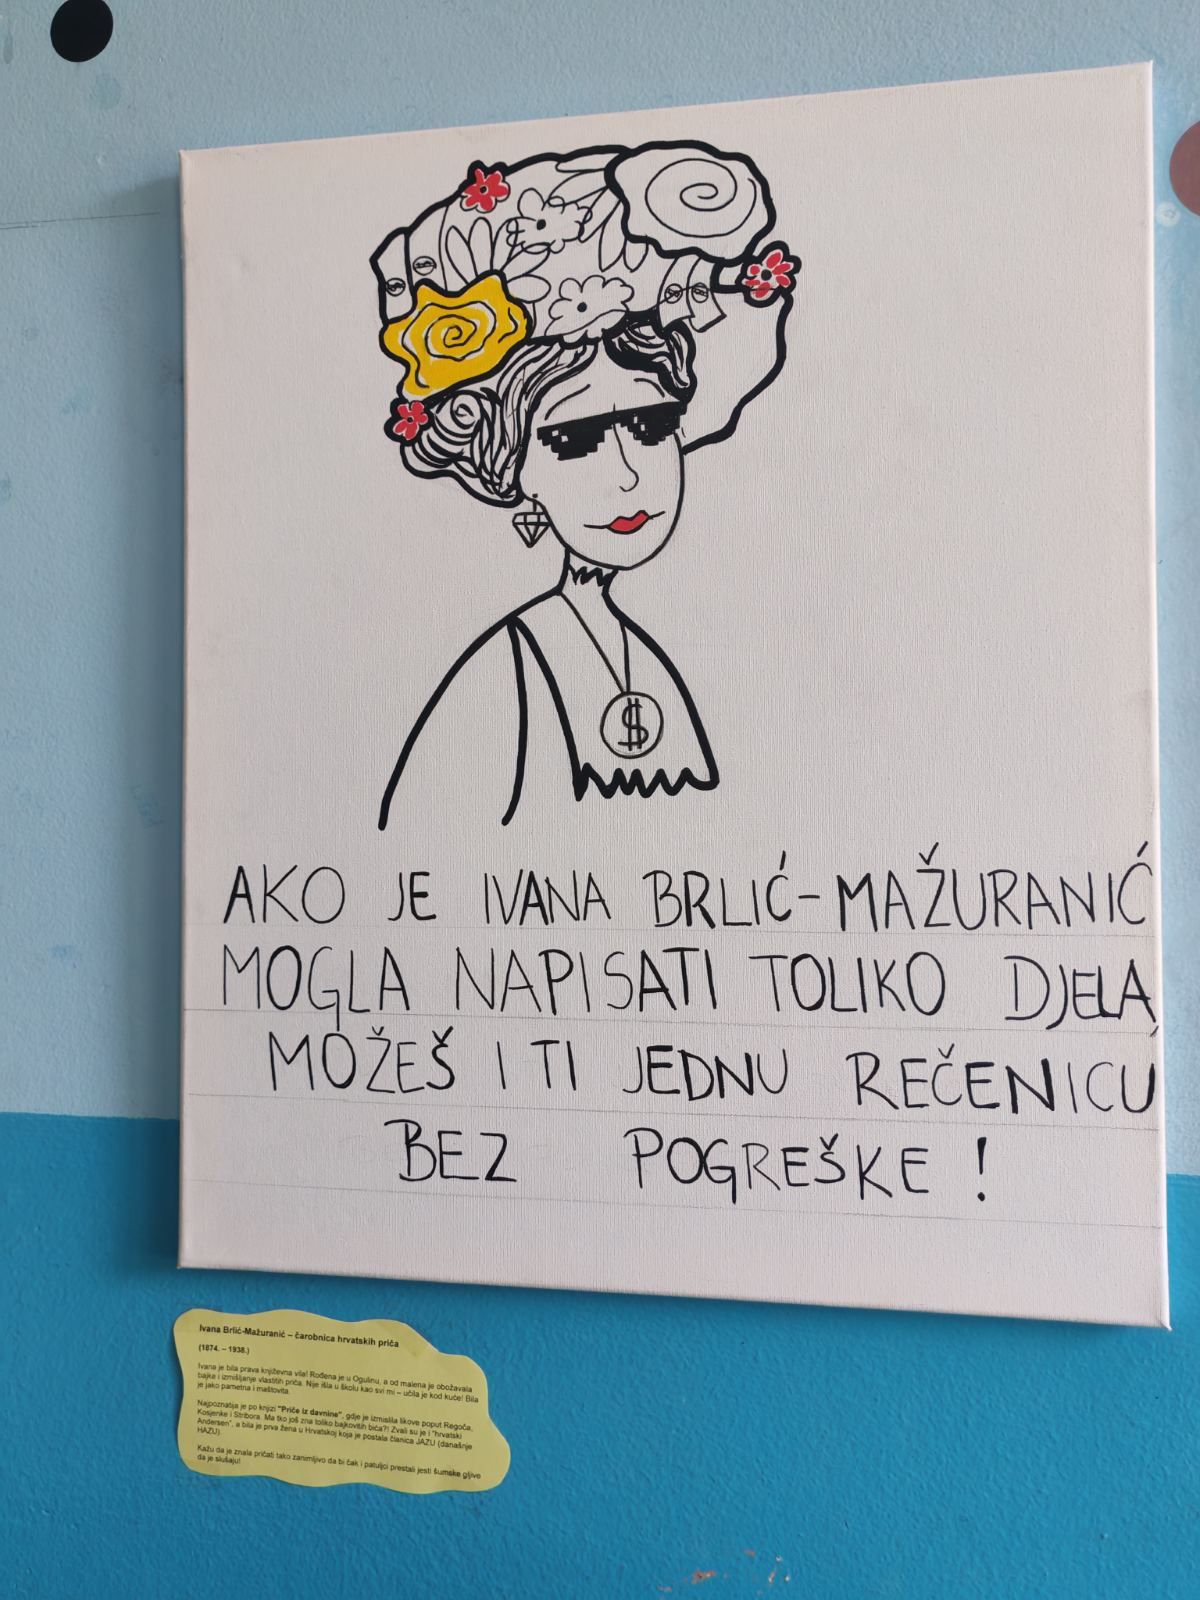 $
AKO JE IVANA BRLIĆ-MAŽURANIĆ
MOGLA NAPISATI TOLIKO DJELA,
MOŽEŠ I TI JEDNU REČENICU
BEZ POGREŠKE !
Ivana Brlić-Mažuranić – čarobnica hrvatskih priča
(1874. – 1938.)
Ivana je bila prava književna vila! Rođena je u Ogulinu, a od malena je obožavala
bajke i izmišljanje vlastitih priča. Nije išla u školu kao svi mi – učila je kod kuće! Bila
je jako pametna i maštovita.
Najpoznatija je po knjizi "Priče iz davnine", gdje je izmislila likove poput Regoča,
Kosjenke i Stribora. Ma tko još zna toliko bajkovitih bića?! Zvali su je i "hrvatski
Andersen", a bila je prva žena u Hrvatskoj koja je postala članica JAZU (današnje
HAZU).
Kažu da je znala pričati tako zanimljivo da bi čak i patuljci prestali jesti šumske gljive
da je slušaju!